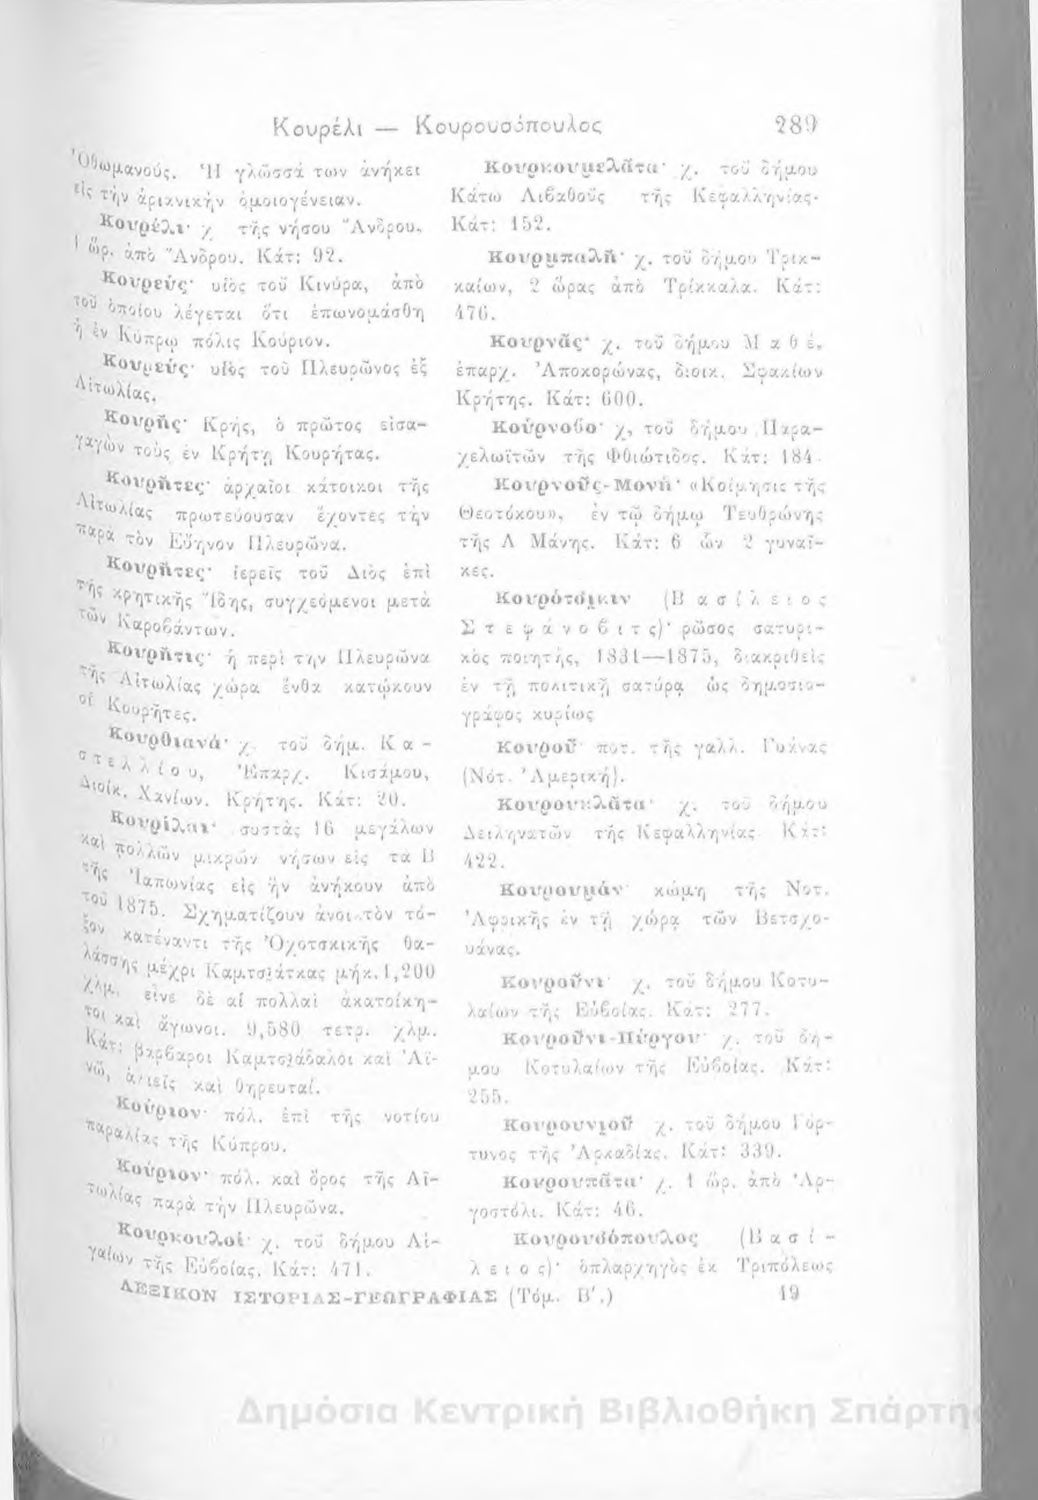 Κουρέλι — Κουρουσόπουλος 289
Ὀθωμανούς. Ἡ γλῶσσά των ἀνήκει
εἰς τὴν ἀριανικὴν ὁμοιογένειαν.
Κουρέλι· χ. τῆς νήσου Ἄνδρου,
1 ὥρ. ἀπὸ Ἄνδρου. Κάτ: 92.
Κουρεύς· υἱὸς τοῦ Κινύρα, ἀπὸ
τοῦ ὁποίου λέγεται ὅτι ἐπωνομάσθη
ἡ ἐν Κύπρῳ πόλις Κούριον.
Κουρεύς· υἱὸς τοῦ Πλευρῶνος ἐξ
Αἰτωλίας.
Κουρῆς· Κρής, ὁ πρῶτος εἰσα-
γαγὼν τοὺς ἐν Κρήτῃ Κουρήτας.
Κουρῆτες· ἀρχαῖοι κάτοικοι τῆς
Αἰτωλίας πρωτεύουσαν ἔχοντες τὴν
παρὰ τὸν Εὔηνον Πλευρῶνα.
Κουρῆτες· ἱερεῖς τοῦ Διὸς ἐπὶ
τῆς κρητικῆς Ἴδης, συγχεόμενοι μετὰ
τῶν Καροβάντων.
Κουρῆτις· ἡ περὶ την Πλευρῶνα
τῆς Αἰτωλίας χώρα ἔνθα κατῴκουν
οἱ Κουρῆτες.
Κουρθιανά· χ. τοῦ δήμ. Κα-
στελλίου, Ἐπαρχ. Κισάμου,
Διοίκ. Χανίων. Κρήτης. Κάτ: 20.
Κουρίλαι· συστὰς 16 μεγάλων
καὶ πολλῶν μικρῶν νήσων εἰς τα Β
τῆς Ἰαπωνίας εἰς ἣν ἀνήκουν ἀπὸ
τοῦ 1875. Σχηματίζουν ἀνοι..τὸν τό-
ξον κατέναντι τῆς Ὀχοτσκικῆς θα-
λάσσης μέχρι Καμτσιάτκας μήκ. 1,200
χλμ. εἶνε δὲ αἱ πολλαὶ ἀκατοίκη-
τοι καὶ ἄγωνοι. 9,580 τετρ. χλμ.
Κάτ: βάρβαροι Καμτσιάδαλοι καὶ Ἀϊ-
νῶ, ἁλιεῖς καὶ θηρευταί.
Κούριον· πόλ. ἐπὶ τῆς νοτίου
παραλίας τῆς Κύπρου.
Κούριον· πόλ. καὶ ὄρος τῆς Αἰ-
τωλίας παρὰ τὴν Πλευρῶνα.
Κουρκουλοί· χ. τοῦ δήμου Αἰ-
γαίων τῆς Εὐβοίας. Κάτ: 471.
Κουρκουμελᾶτα· χ. τοῦ δήμου
Κάτω Λιβαθοῦς τῆς Κεφαλληνίας·
Κάτ: 152.
Κουρμπαλῆ· χ. τοῦ δήμου Τρικ-
καίων, 2 ὥρας ἀπὸ Τρίκκαλα. Κάτ:
476.
Κουρνᾶς· χ. τοῦ δήμου Μαθέ,
ἐπαρχ. Ἀποκορώνας, διοικ. Σφακίων
Κρήτης. Κάτ: 600.
Κούρνοβο· χ, τοῦ δήμου Παρα-
χελωϊτῶν τῆς Φθιώτιδος. Κάτ: 184.
Κουρνοῦς-Μονή· «Κοίμησις τῆς
Θεοτόκου», ἐν τῷ δήμῳ Τευθρώνης
τῆς Λ Μάνης. Κάτ: 6 ὧν 2 γυναῖ-
κες.
Κουρότσικιν (Βασίλειος
Στεφάνοβιτς)· ρῶσος σατυρι-
κὸς ποιητής, 1831—1875, διακριθεὶς
ἐν τῇ πολιτικῇ σατύρᾳ ὡς δημοσιο-
γράφος κυρίως
Κουροῦ· ποτ. τῆς γαλλ. Γυάνας
(Νότ. Ἀμερική).
Κουρουκλᾶτα· χ. τοῦ δήμου
Δειληνατῶν τῆς Κεφαλληνίας Κάτ:
422.
Κουρουμάν· κώμη τῆς Νοτ.
Ἀφρικῆς ἐν τῇ χώρᾳ τῶν Βετσχο-
υάνας.
Κουροῦνι· χ. τοῦ δήμου Κοτυ-
λαίων τῆς Εὐβοίας. Κάτ: 277.
Κουροῦνι-Πύργον· χ. τοῦ δή-
μου Κοτυλαίων τῆς Εὐβοίας. Κάτ:
255.
Κουρουνιοῦ· χ. τοῦ δήμου Γόρ-
τυνος τῆς Ἀρκαδίας. Κάτ: 339.
Κουρουπᾶτα· χ. 1 ὥρ. ἀπὸ Ἀρ-
γοστόλι. Κάτ: 46.
Κουρουσόπουλος (Βασί-
λειος)· ὁπλαρχηγὸς ἐκ Τριπόλεως
ΛΕΞΙΚΟΝ ΙΣΤΟΡΙΑΣ-ΓΕΩΓΡΑΦΙΑΣ (Τόμ. Β'.) 19
Δημόσια Κεντρική Βιβλιοθήκη Σπάρτης